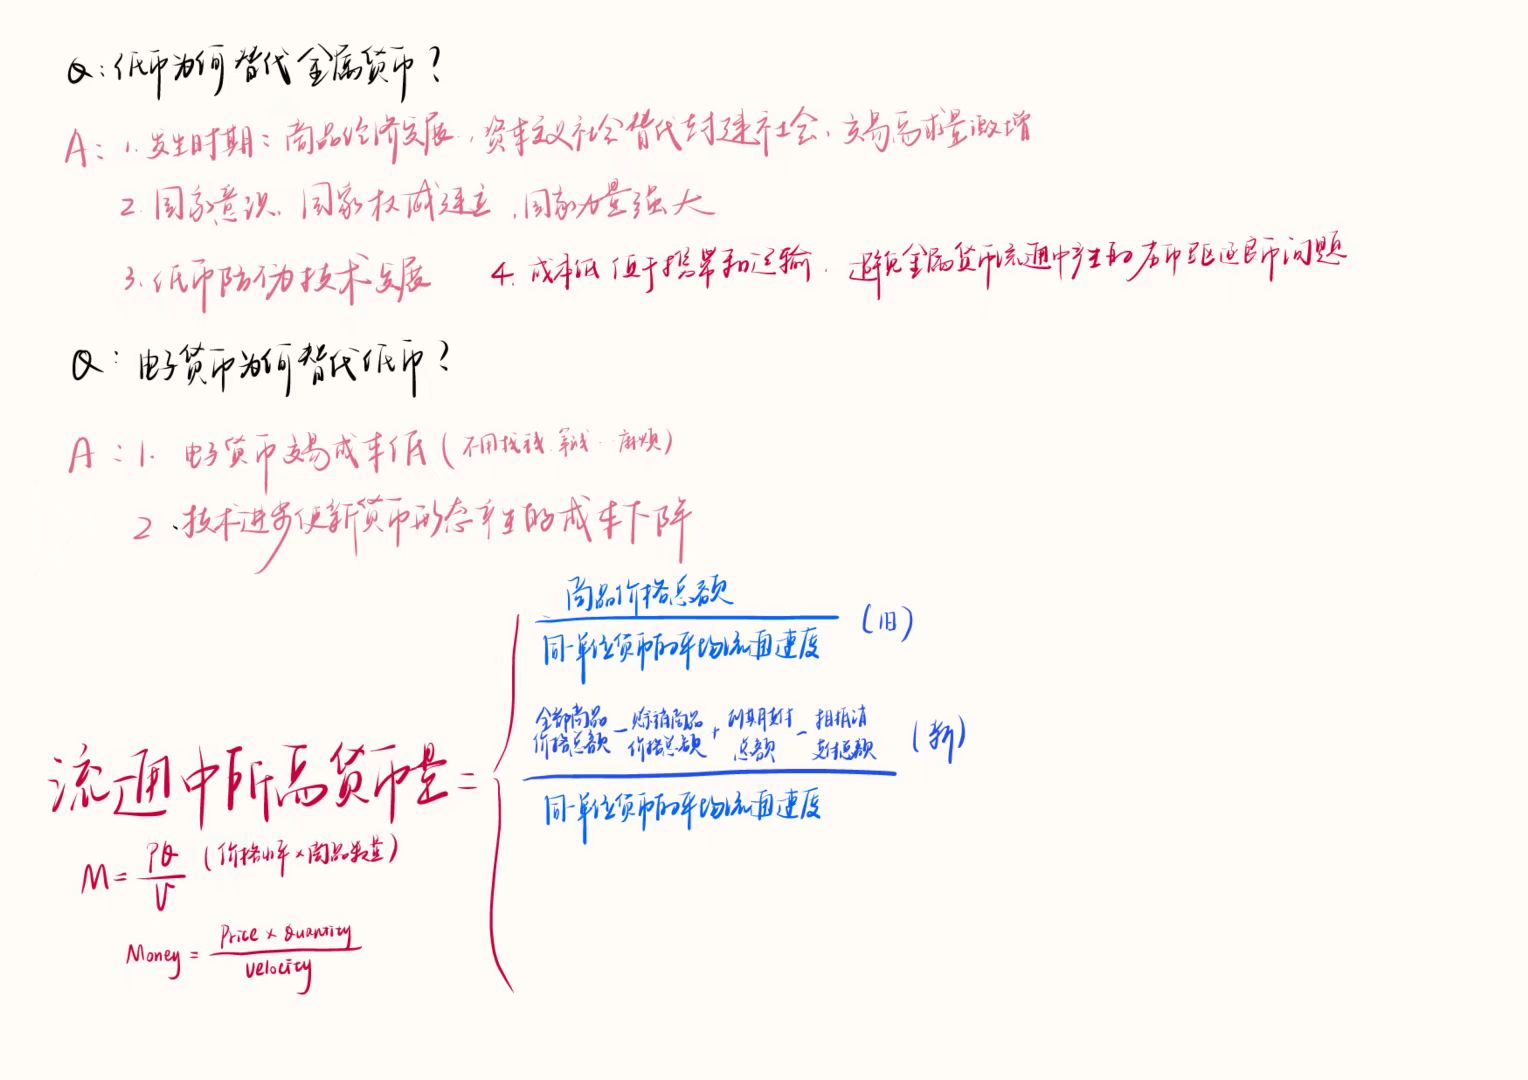 Q：纸币为何替代金属货币？
A：1. 发生时期：商品经济发展，资本主义社会替代封建社会、交易需求量激增
2. 国家意识、国家权威建立，国家力量强大
3. 纸币防伪技术发展 4. 成本低 便于携带和运输. 避免金属货币流通中产生的劣币驱逐良币问题
Q：电子货币为何替代纸币？
A：1. 电子货币交易成本低（不用找钱、麻烦）
2、技术进步使新货币形态产生的成本下降
商品价格总额
同一单位货币的平均流通速度
（旧）
全部商品价格总额 － 赊销商品价格总额 + 到期支付总额 － 相抵消支付总额
（新）
同一单位货币的平均流通速度
流通中所需货币量 =
M = PQ / V （价格水平×商品数量）
Money = Price × Quantity / Velocity